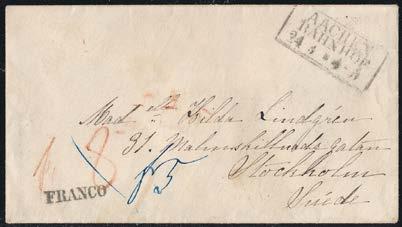 AACHEN
BAHNHOF
24 4
Mad elle Hilda Lindgrén
31. Malmskillnads gatan
Stockholm
Suède
FRANCO